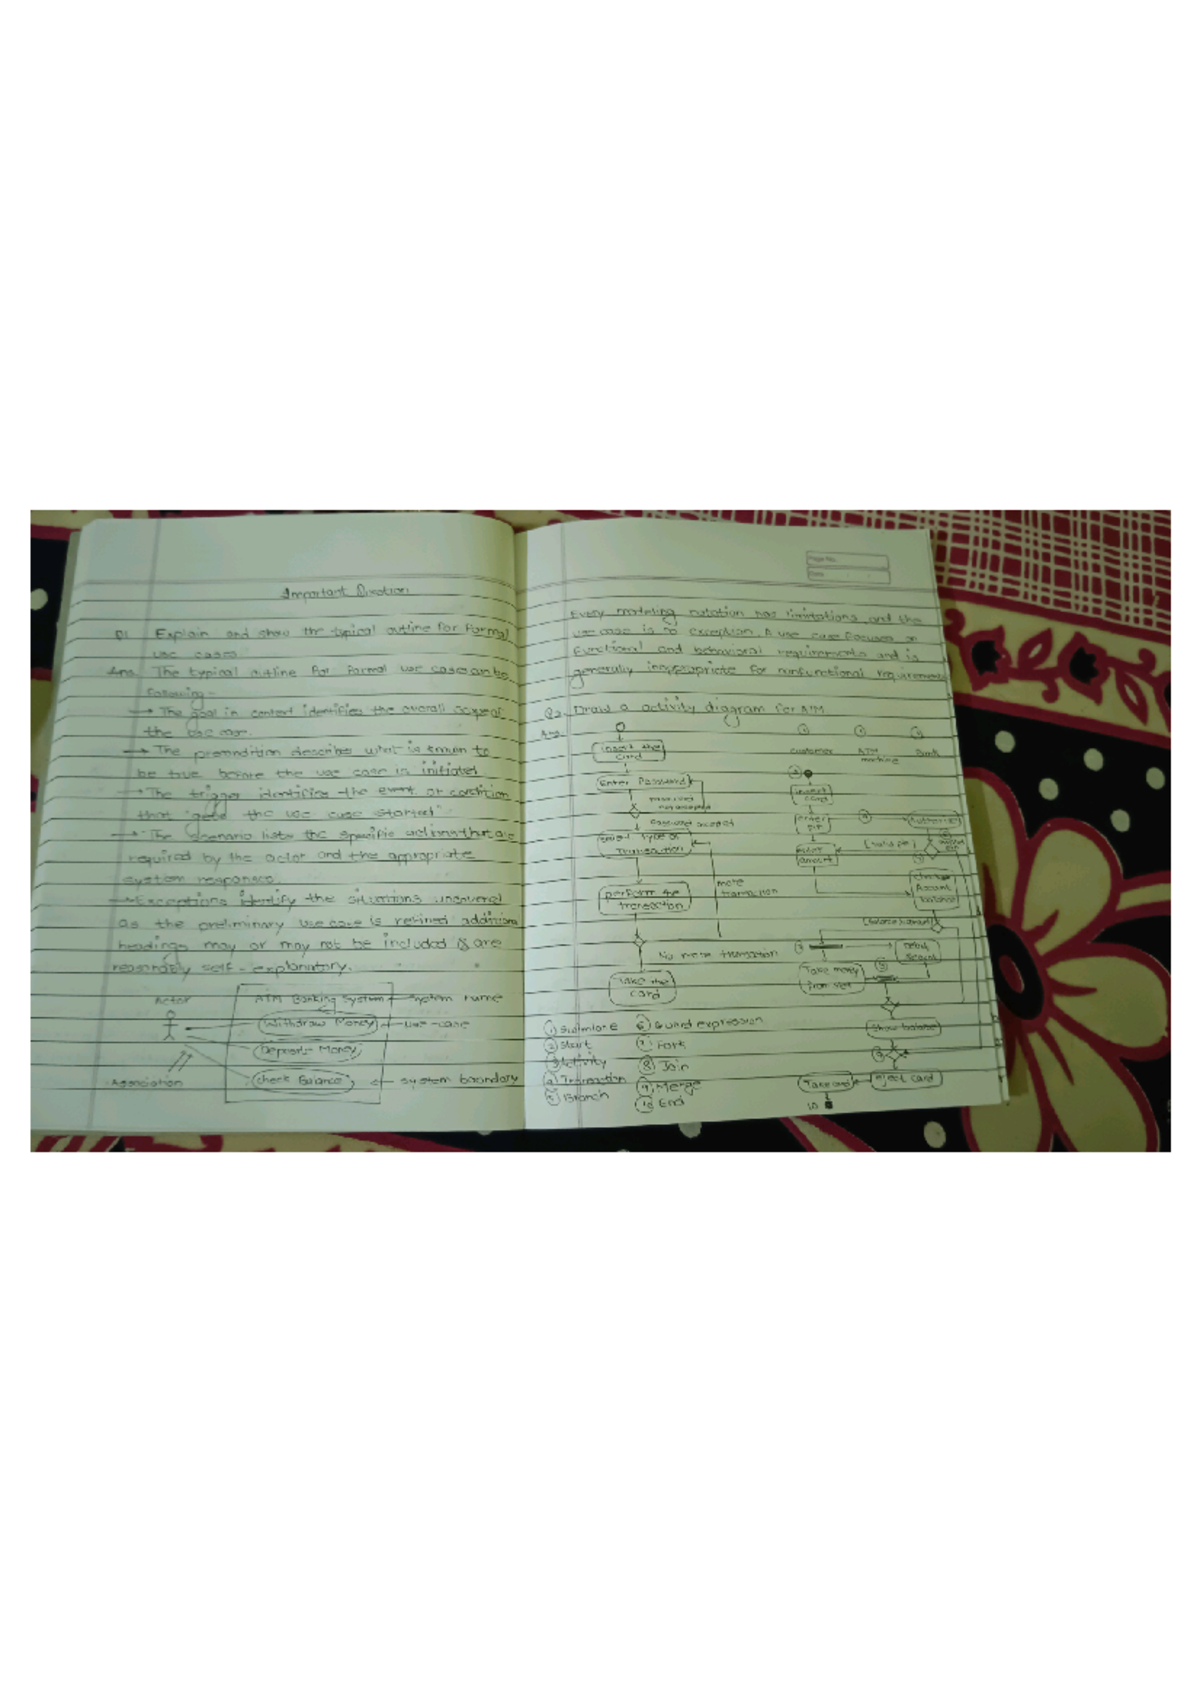 Important Question
Q1 Explain and show the typical outline for formal
use cases
Ans. The typical outline for formal use case can be
following -
→ The goal in context identifies the overall scope of
the use case.
→ The precondition describes what is known to
be true before the use case is initiated
→ The trigger identifies the event or condition
that "gets the use case started"
→ The scenario lists the specific actions that are
required by the actor and the appropriate
system responses.
→ Exceptions identify the situations uncovered
as the preliminary use case is refined additional
headings may or may not be included & are
reasonably self-explanatory.
Actor
ATM Banking System
System name
Withdraw Money
use-case
Deposit Money
Association
check Balance
system boundary
Page No.
Date
Every modeling notation has limitations, and the
use case is no exception. A use case focuses on
functional and behavioral requirements and is
generally inappropriate for nonfunctional requirements
Q2. Draw a activity diagram for ATM
Ans.
insert the
card
Enter Password
not accepted
Type of
Transaction
more
transaction
perform the
transaction
No more transaction
Take the
card
customer
ATM
machine
Bank
insert
card
enter
pin
Enter
amount
Authorize
[valid pin]
Account
balance
debit
Take money
from slot
Show balance
Take card
eject card
10
① Swimlane
② Start
③ Activity
④ Transaction
⑤ Branch
⑥ Guard expression
⑦ Fork
⑧ Join
⑨ Merge
⑩ End